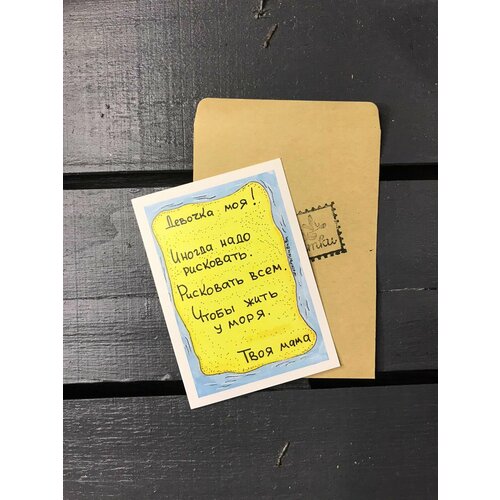 Девочка моя!
Иногда надо
рисковать.
Рисковать всем.
Чтобы жить
у моря.
Твоя мама